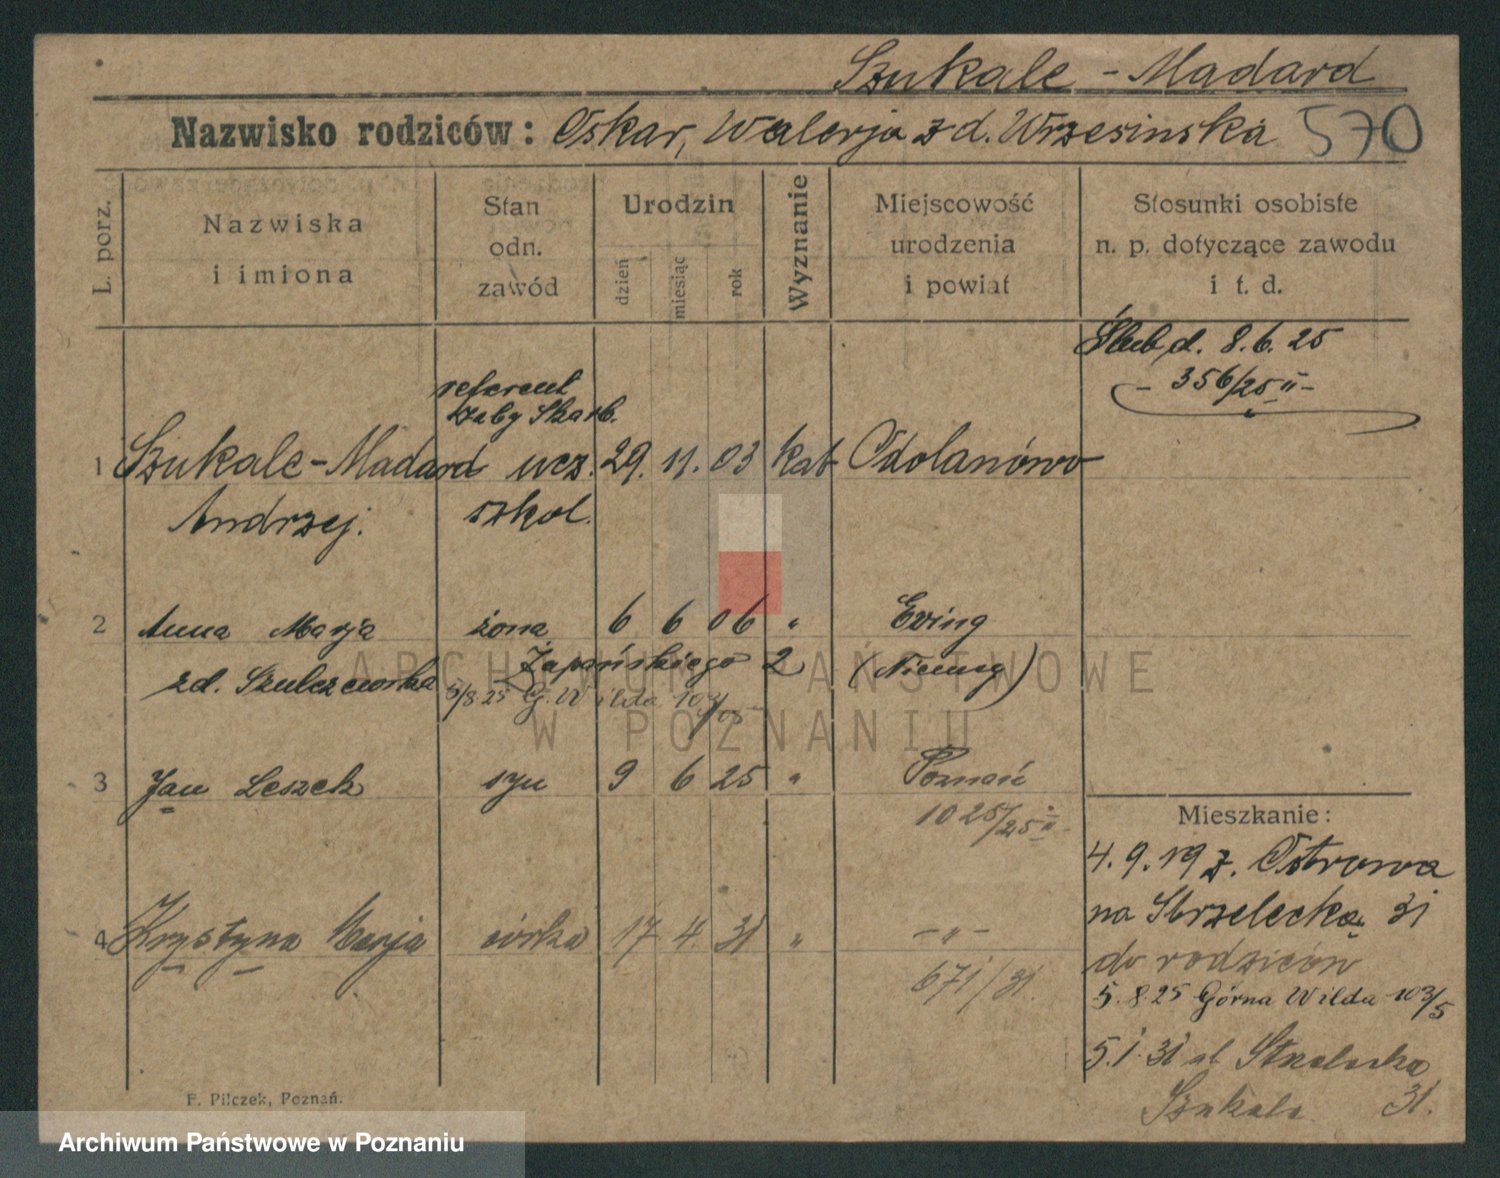 Szukale - Madard
Nazwisko rodziców: Oskar, Walerja z d. Wrzesinska 570
L. porz.
Nazwiska
i imiona
Stan
odn.
zawód
Urodzin
dzień
miesiąc
rok
Wyznanie
Miejscowość
urodzenia
i powiat
Stosunki osobiste
n. p. dotyczące zawodu
i t. d.
Ślub d. 8.6.25
- 356/25 II -
referent
Izby Skarb.
1 Szukale-Madard ucz. 29. 11. 03 kat Odolanówo
Andrzej. szkol.
2 Anna Marja żona 6 6 06 " Eving
zd. Szulczewska Zapańskiego 2 (Niemcy)
5/8 25 G. Wilda 103/5
3 Jan Leszek syn 9 6 25 " Poznań
1025/25 II -
4 Krystyna Marja córka 17 4. 31 " - " -
671/31.
Mieszkanie:
4.9.19 z. Ostrowa
na Strzelecką 31
do rodziców
5.8.25 Górna Wilda 103/5
5.1.31 ul Strzelecka
Szukala 31.
F. Pilczek, Poznań.
ARCHIWUM PAŃSTWOWE
W POZNANIU
Archiwum Państwowe w Poznaniu